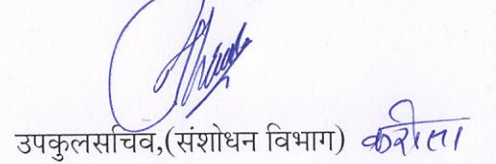 उपकुलसचिव,(संशोधन विभाग) करीता